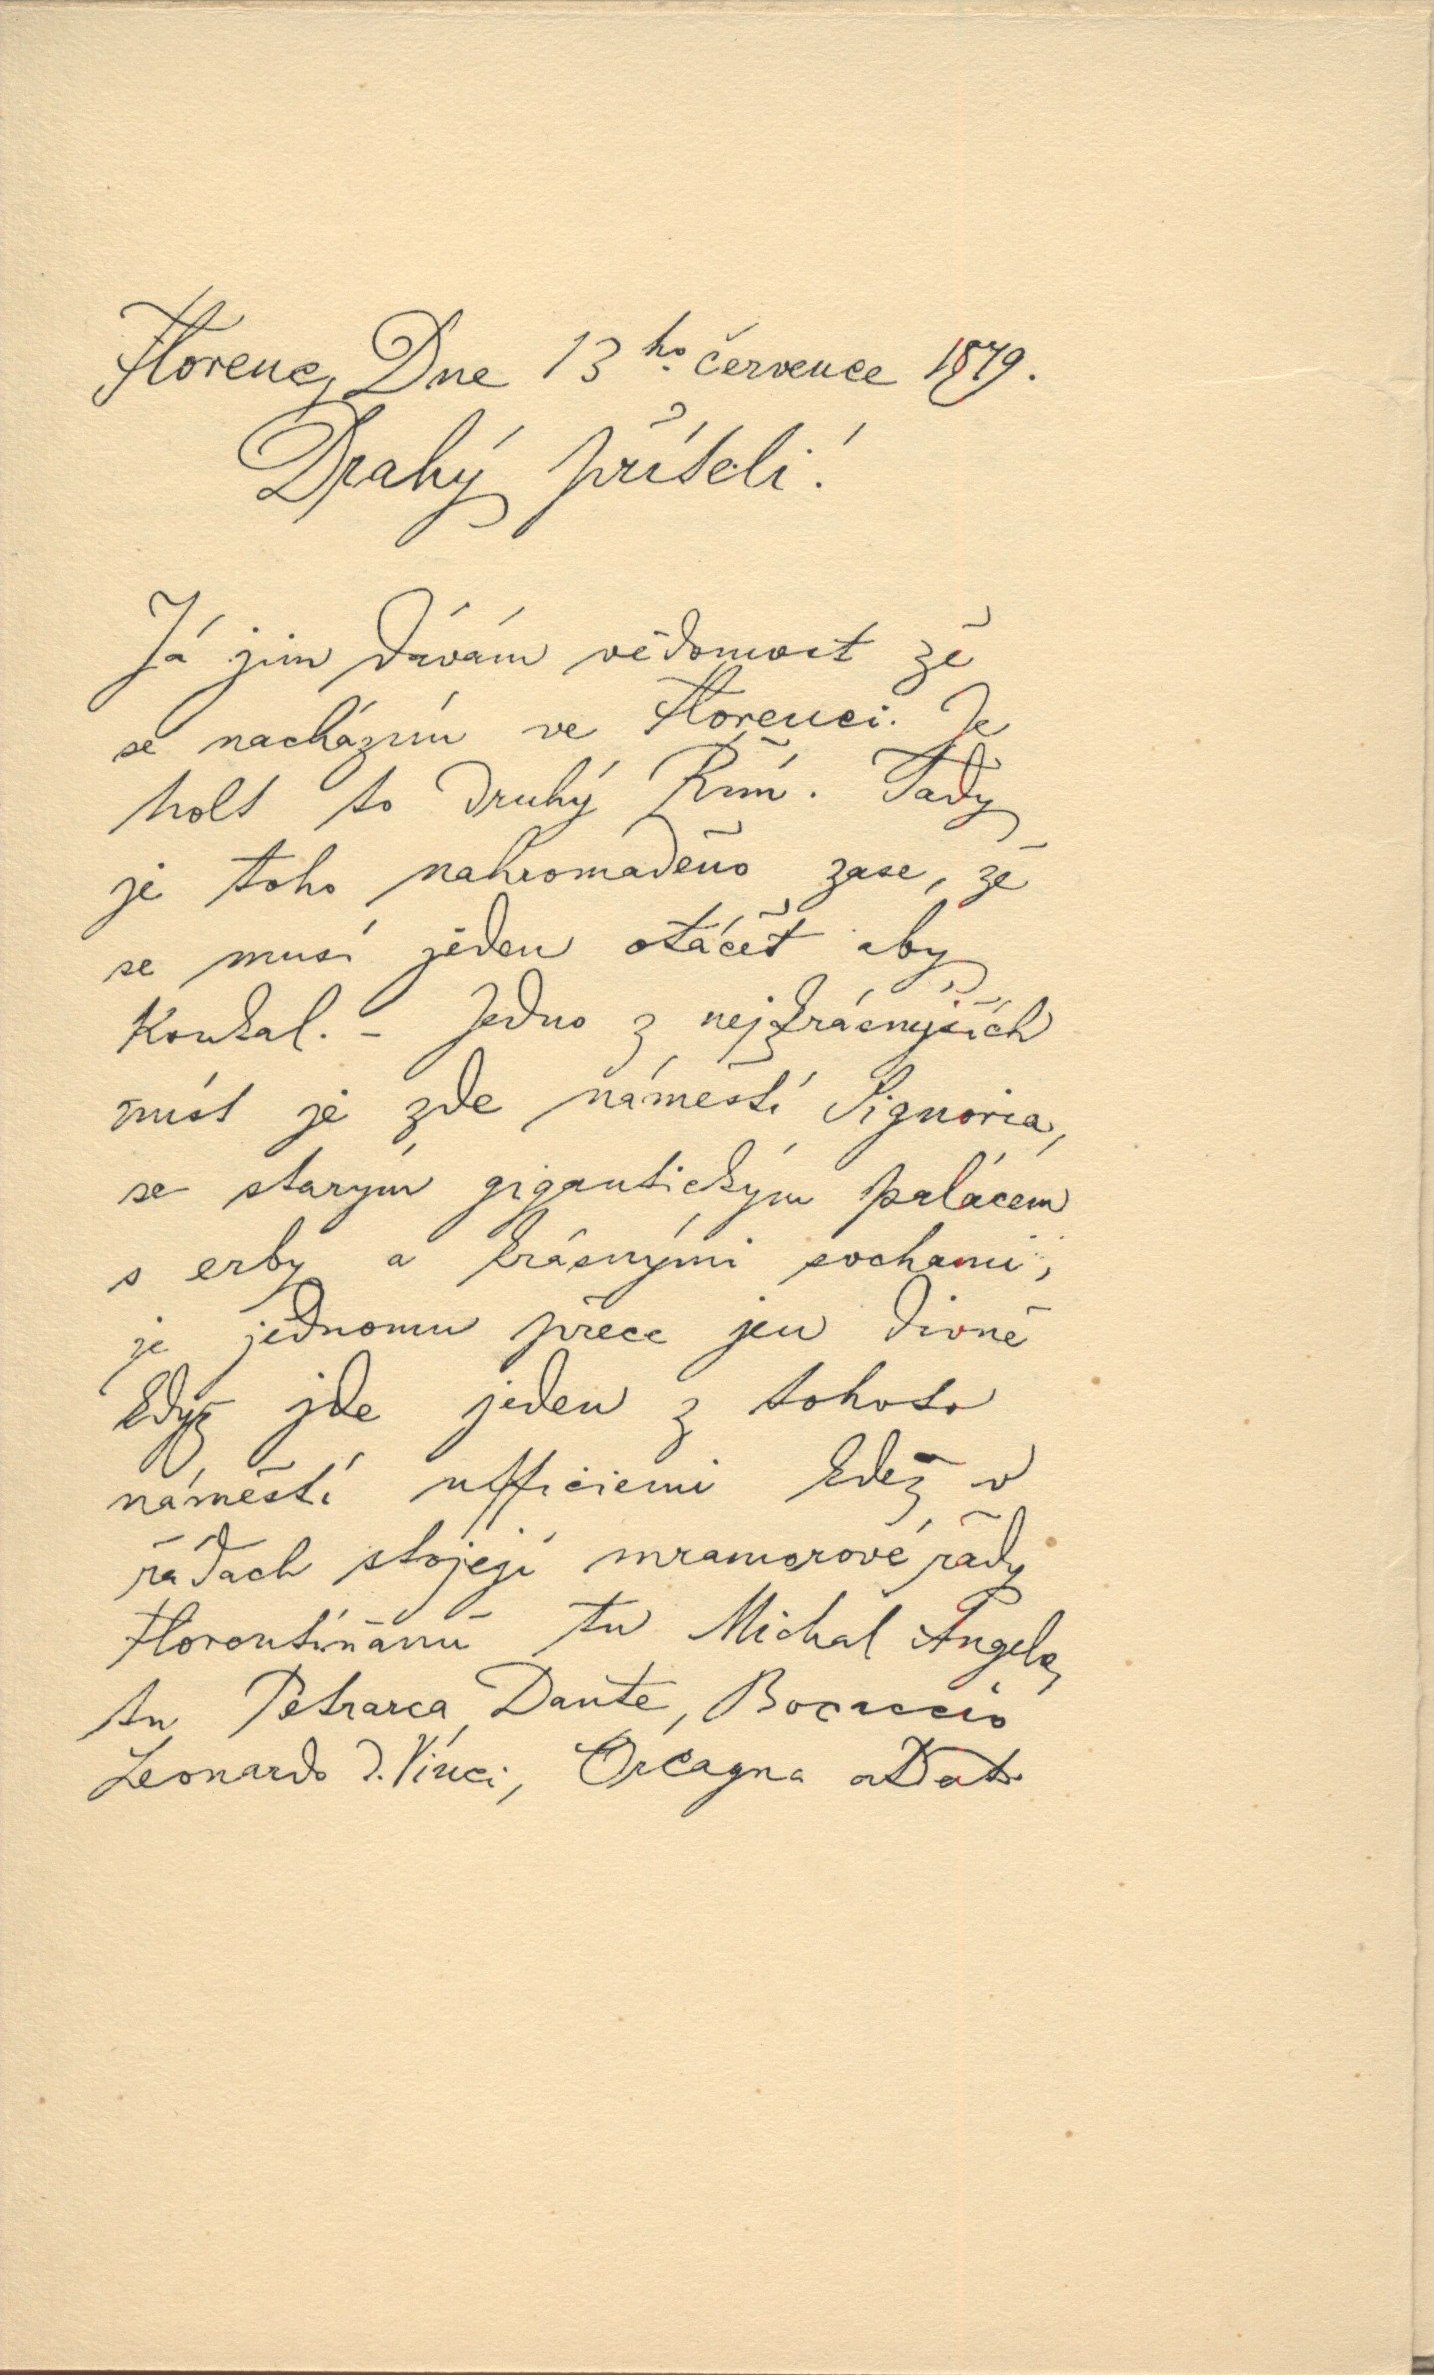 Florenc, Dne 13ho. července 1879.
Drahý příteli!
Já jim dávám vědomost že
se nacházím ve Florenci. Je
holt to druhý Řím. Tady
je toho nahromaděno zase, že
se musí jeden otáčet aby
koukal. – Jedno z nejkrásnějších
míst je zde náměstí Signoria,
se starým gigantickým palácem
s erby a krásnými sochami,
je jednomu přece jen divně
když jde jeden z tohoto
náměstí ufficiemi kdež v
řadách stojejí mramorové řady
Florentiňanů tu Michal Angelo,
tu Petrarca, Dante, Bocaccio
Leonardo d. Vinci, Orcagna